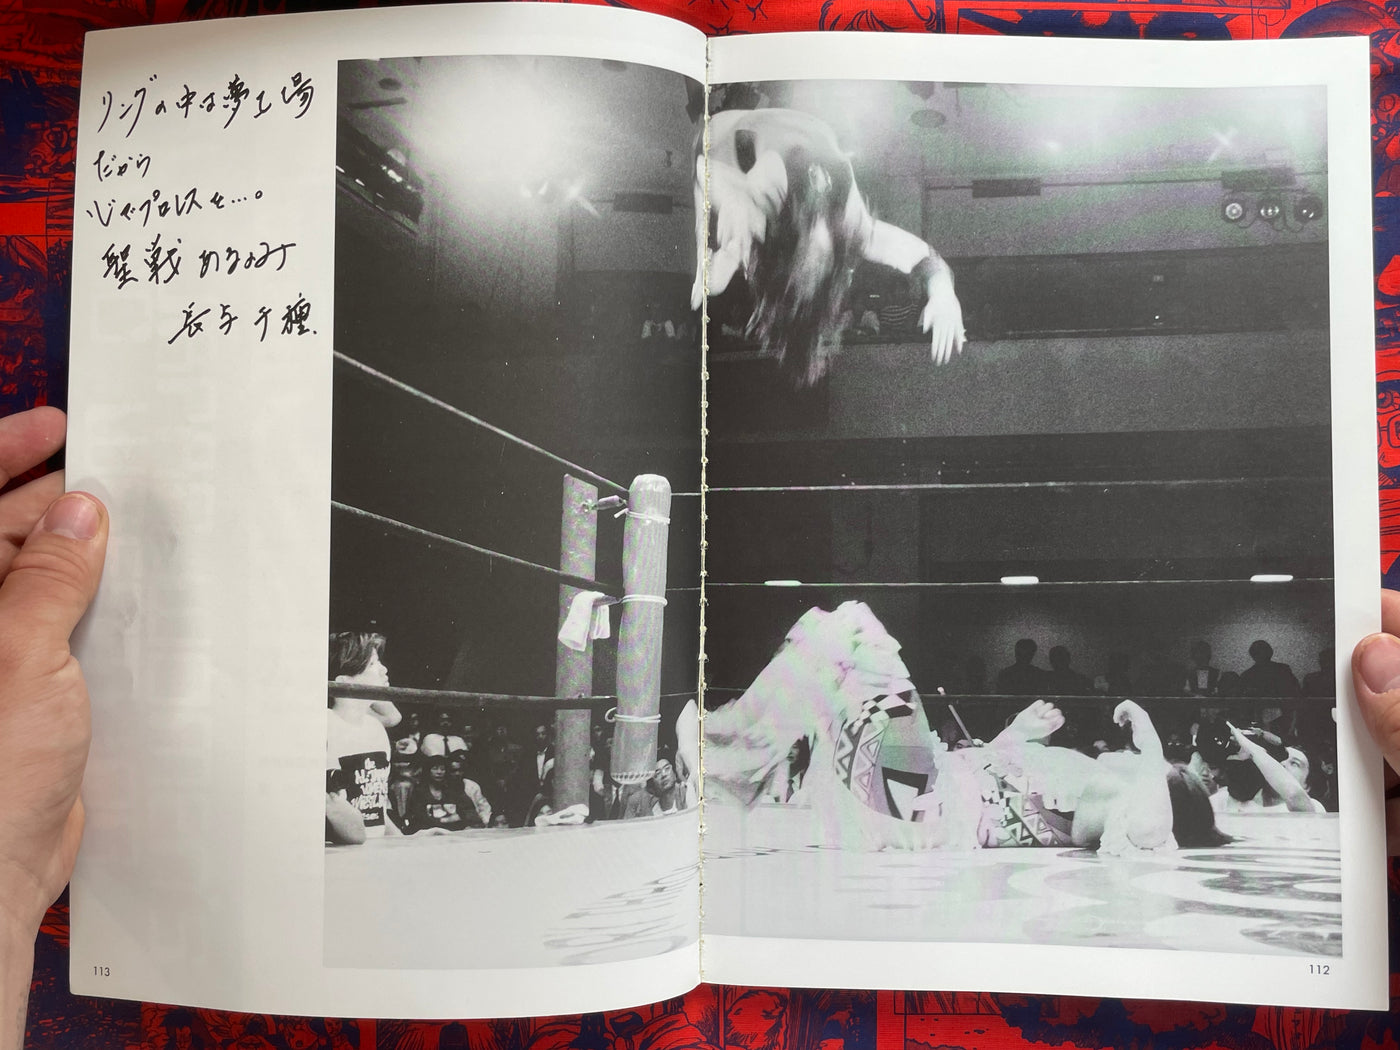 リングの中は夢工場
だから
でプロレスを…。
聖戦あるのみ
長与千種.
the
113
112